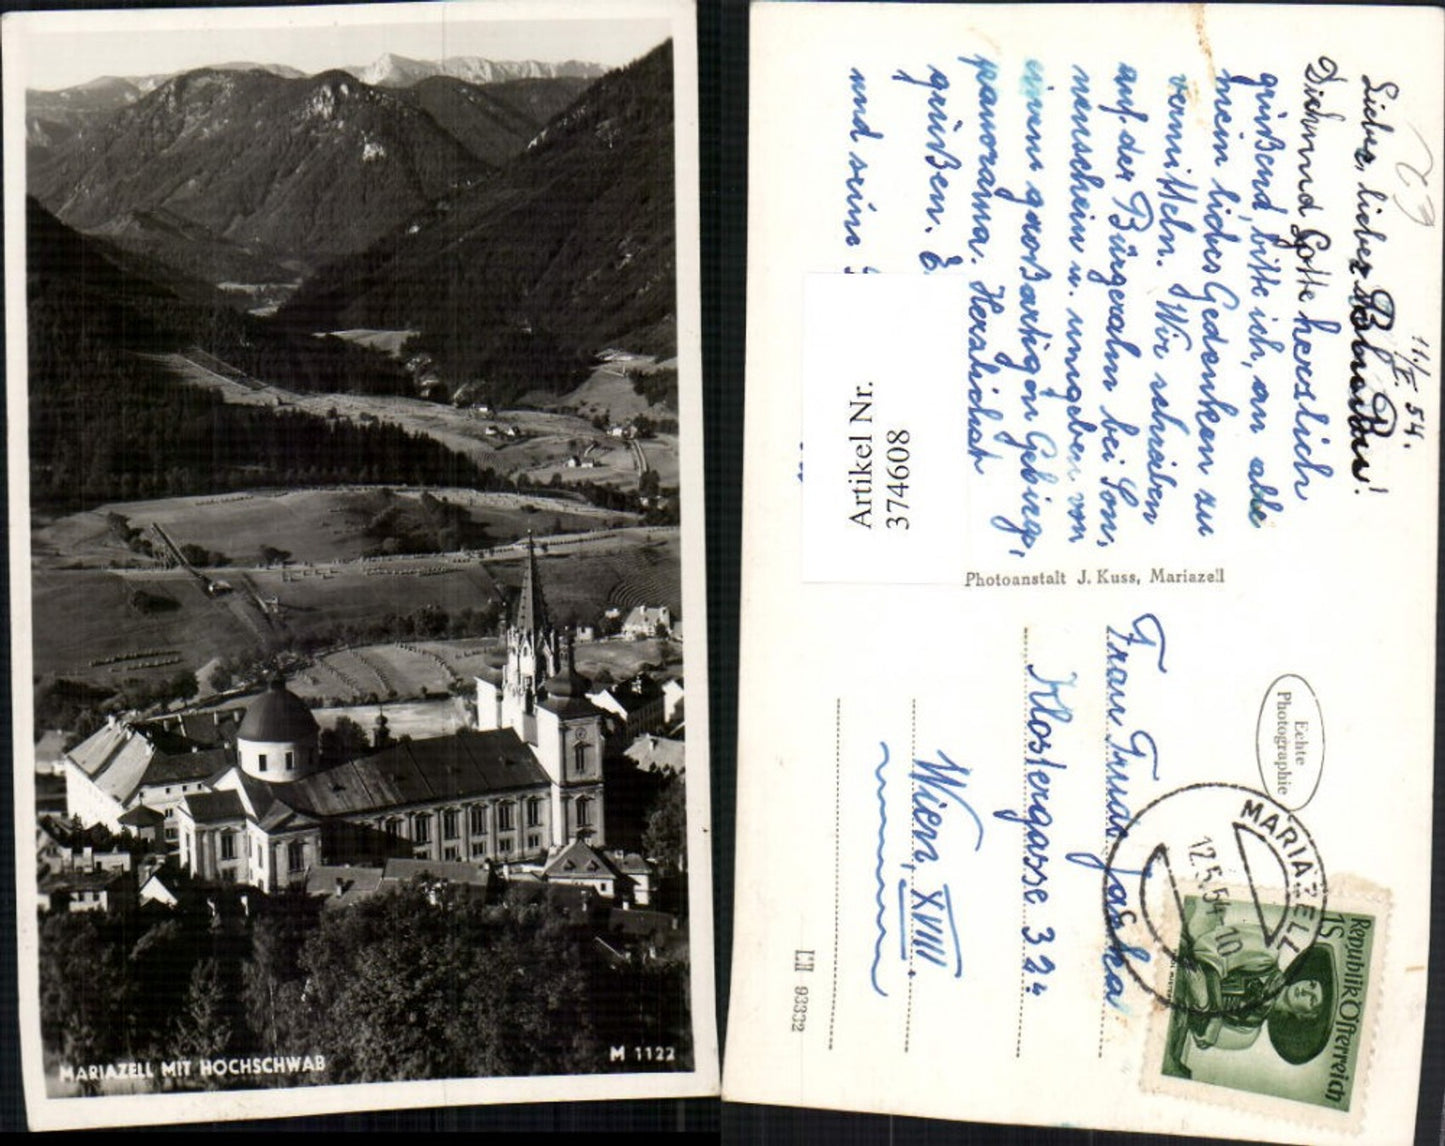 MARIAZELL MIT HOCHSCHWAB
M 1122
11./V. 54.
Lieber, lieber
Dich und Lotte herzlich
grüßend, bitte ich, an alle
mein liebes Gedenken zu
vermitteln. Wir schreiben
auf der Bürgeralm bei Son,
nenschein u. umgeben von
einem großartigen Gebirgs,
panorama. Herzlichst
grüßen.
und seine
Artikel Nr.
374608
Photoanstalt J. Kuss, Mariazell
Echte
Photographie
Frau Trude
Klostergasse 32.
Wien, XVIII.
MARIAZELL
12.5.54-10
Republik Österreich
1S
LH 93332